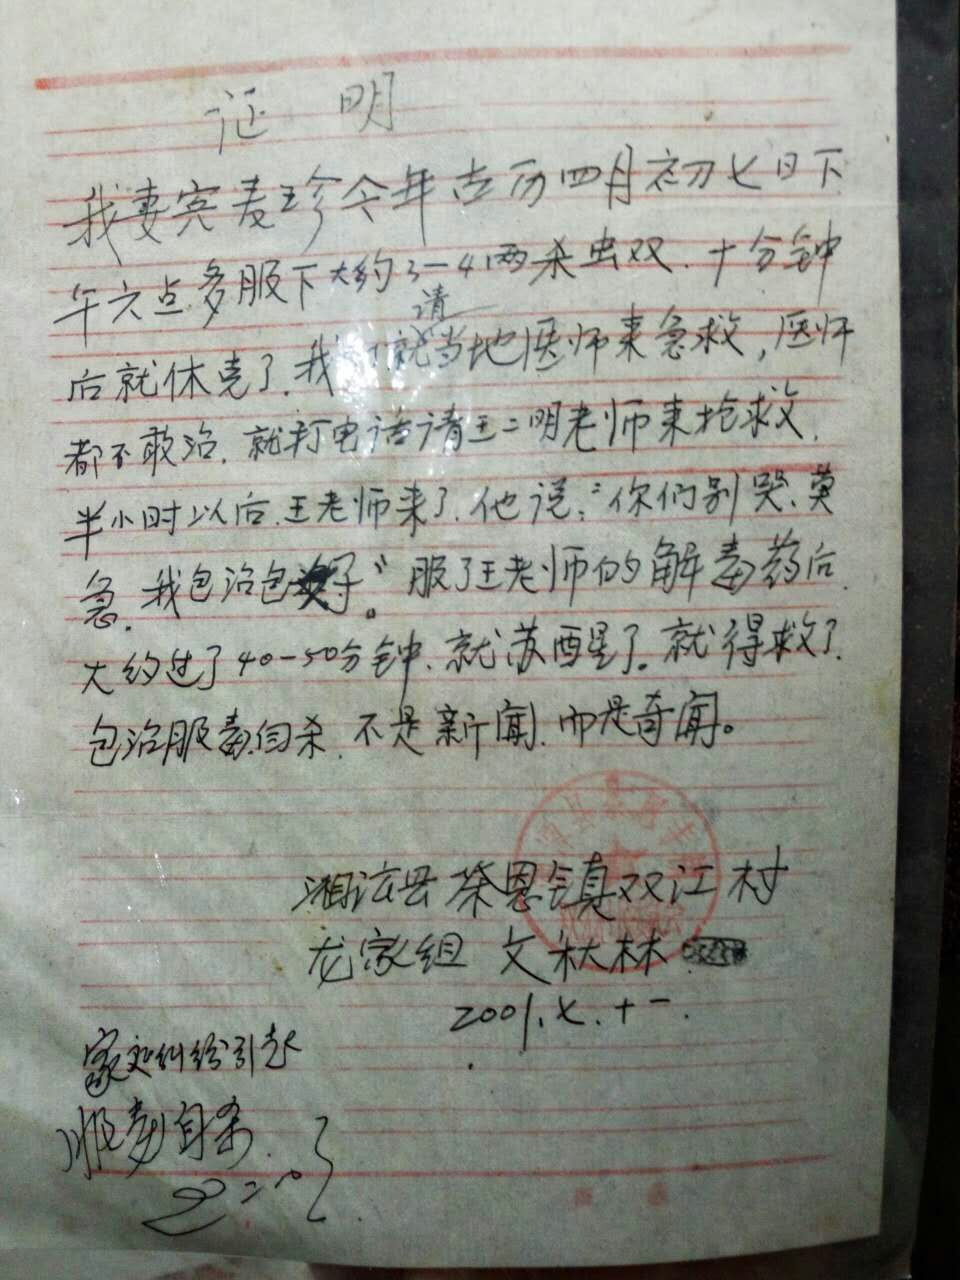 证 明
我妻宾麦珍今年古历四月初七日下
午六点多服下大约3-4两杀虫双.十分钟
后就休克了.我们就请当地医师来急救,医师
都不敢治.就打电话请王二明老师来抢救.
半小时以后.王老师来了.他说:“你们别哭、莫
急.我包治包好”。服了王老师的解毒药后.
大约过了40-50分钟.就苏醒了。就得救了.
包治服毒自杀.不是新闻.而是奇闻。
湘潭县茶恩镇双江村
龙家组 文秋林
2001.七.十一.
家庭纠纷引起
服毒自杀.